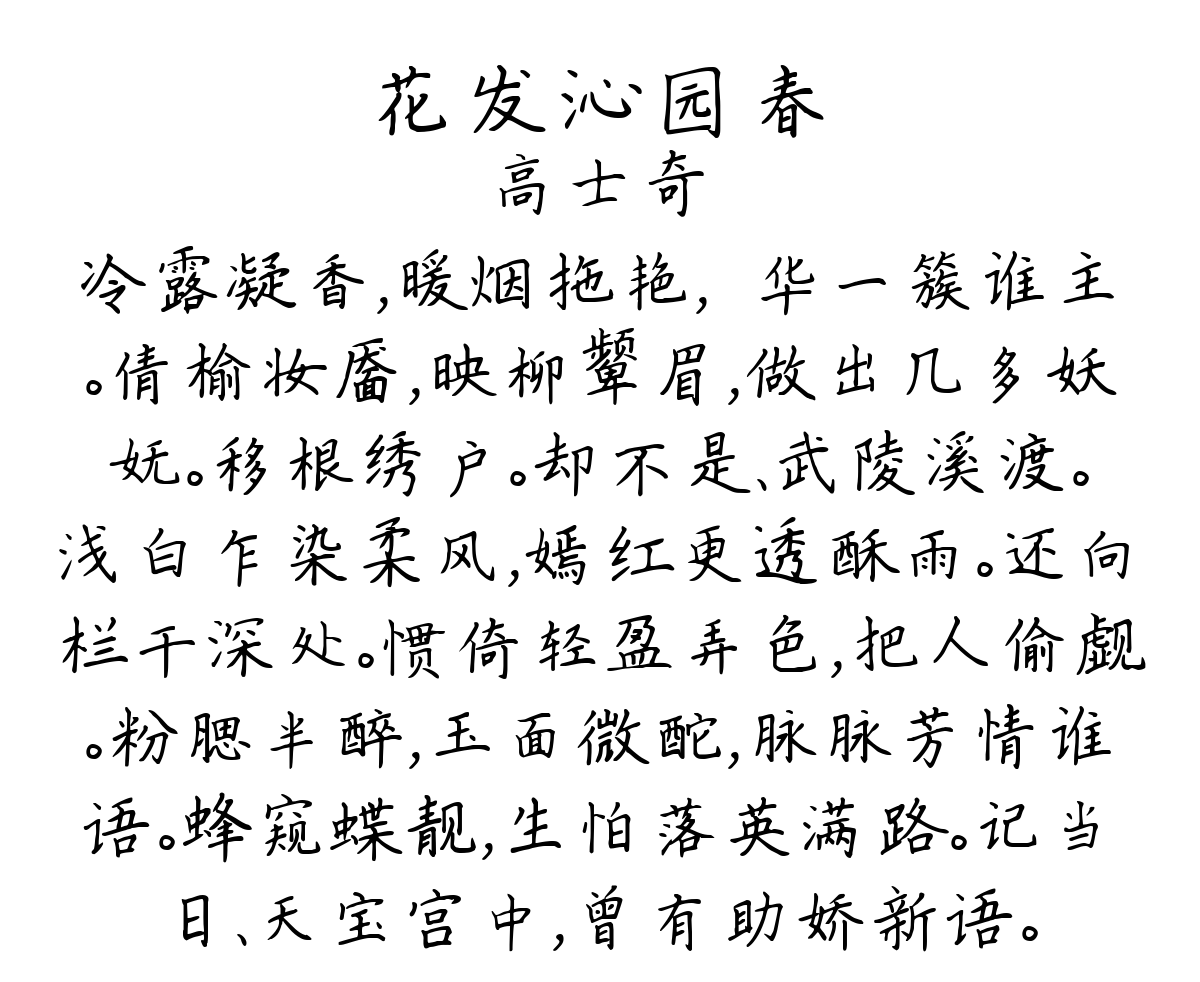 花发沁园春
高士奇
冷露凝香,暖烟拖艳, 华一簇谁主
。倩榆妆靥,映柳颦眉,做出几多妖
妩。移根绣户。却不是、武陵溪渡。
浅白乍染柔风,嫣红更透酥雨。还向
栏干深处。惯倚轻盈弄色,把人偷觑
。粉腮半醉,玉面微酡,脉脉芳情谁
语。蜂窥蝶靓,生怕落英满路。记当
日、天宝宫中,曾有助娇新语。